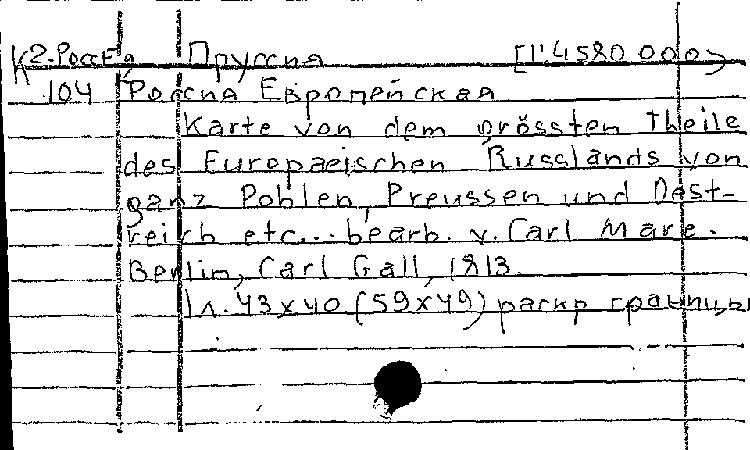 К2-РоссЕв Пруссия [1:4580 000]
104 Россия Европейская
Karte von dem grössten Theile
des Europaeischen Russlands von
ganz Pohlen, Preussen und Oest-
reich etc... bearb. v. Carl Mare.
Berlin, Carl Gall, 1813.
1 л. 43x40 (59x49) раскр границы